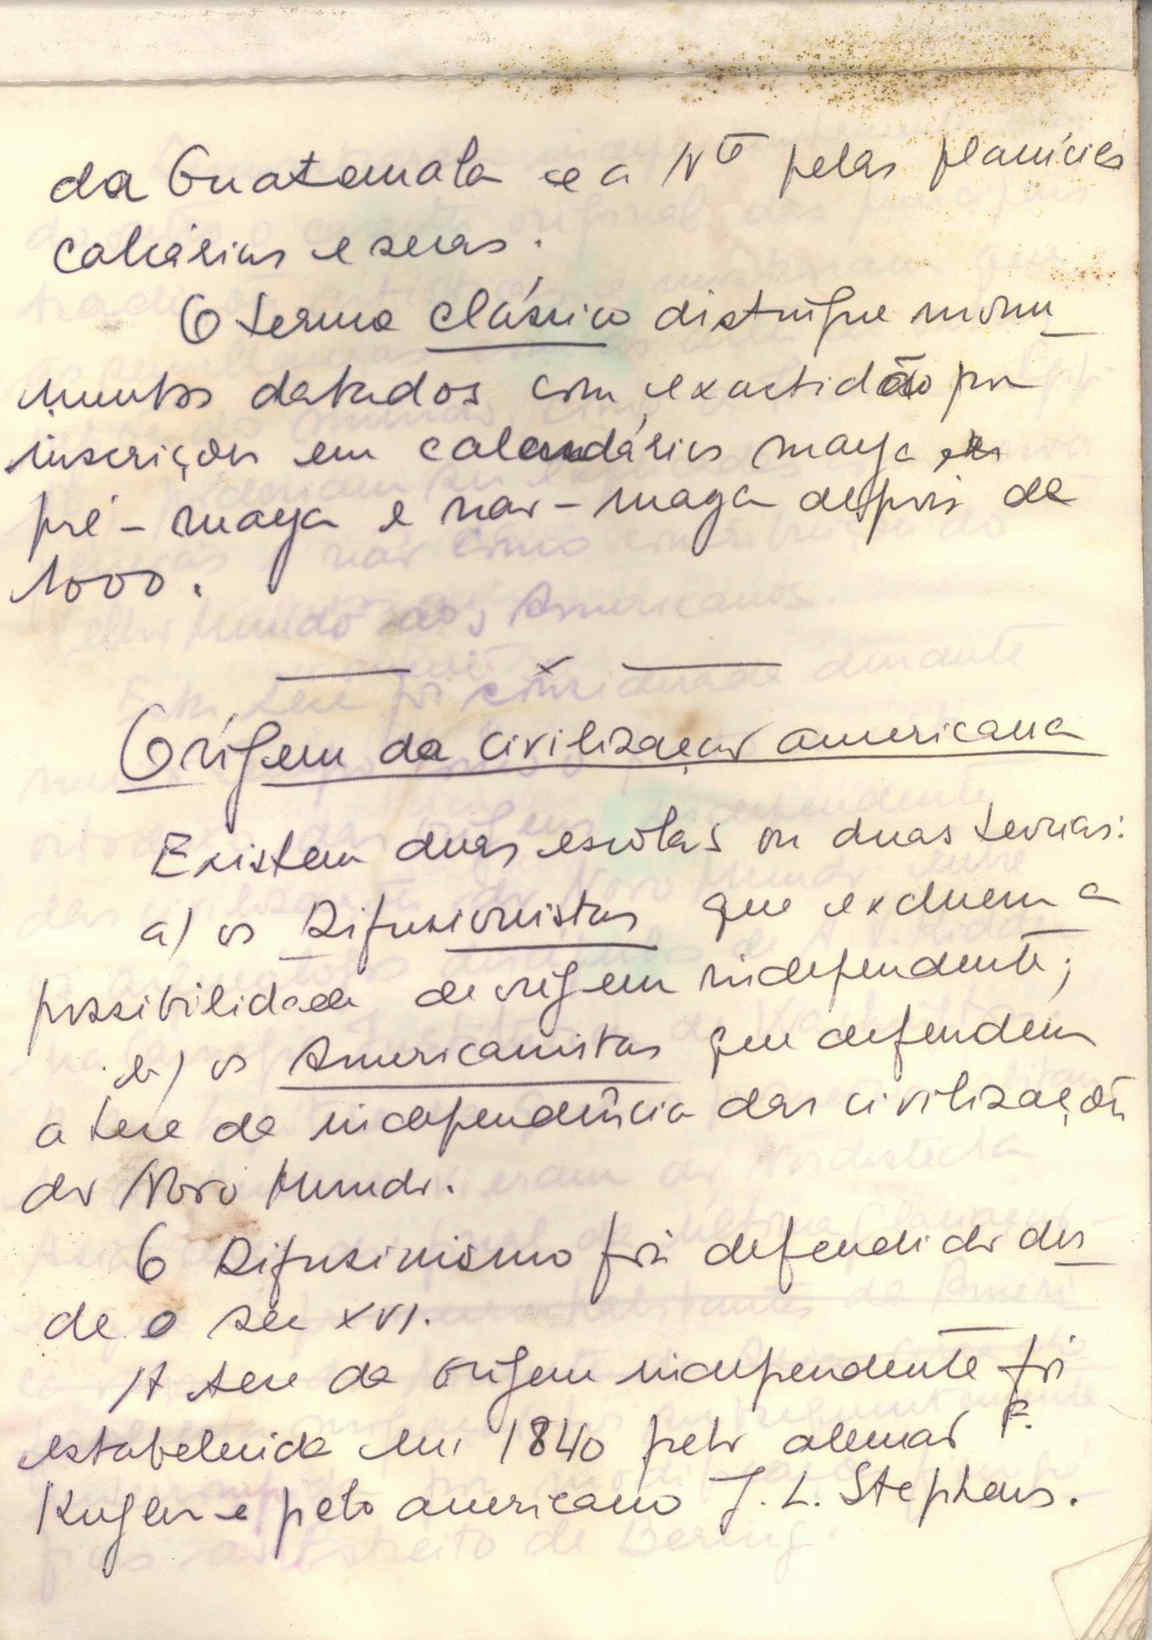 da Guatemala e a Nte pelas planícies
calcárias e secas.
O termo clássico distingue monu_
mentos datados com exactidão por
inscrições em calendários maya
pré-maya e nao-maya depois de
1000.
— x —
Orígem da civilizaçao americana
Existem duas escolas ou duas teorias:
a) os Difusionistas que excluem a
possibilidade de orígem independente;
b) os Americanistas que defendem
a tese da independência das civilizações
do Novo Mundo.
O Difusinismo foi defendido des_
de o sec XVI.
A tese da orígem independente foi
estabelecida em 1840 pelo alemao F.
Kugler e pelo americano J. L. Stephens.